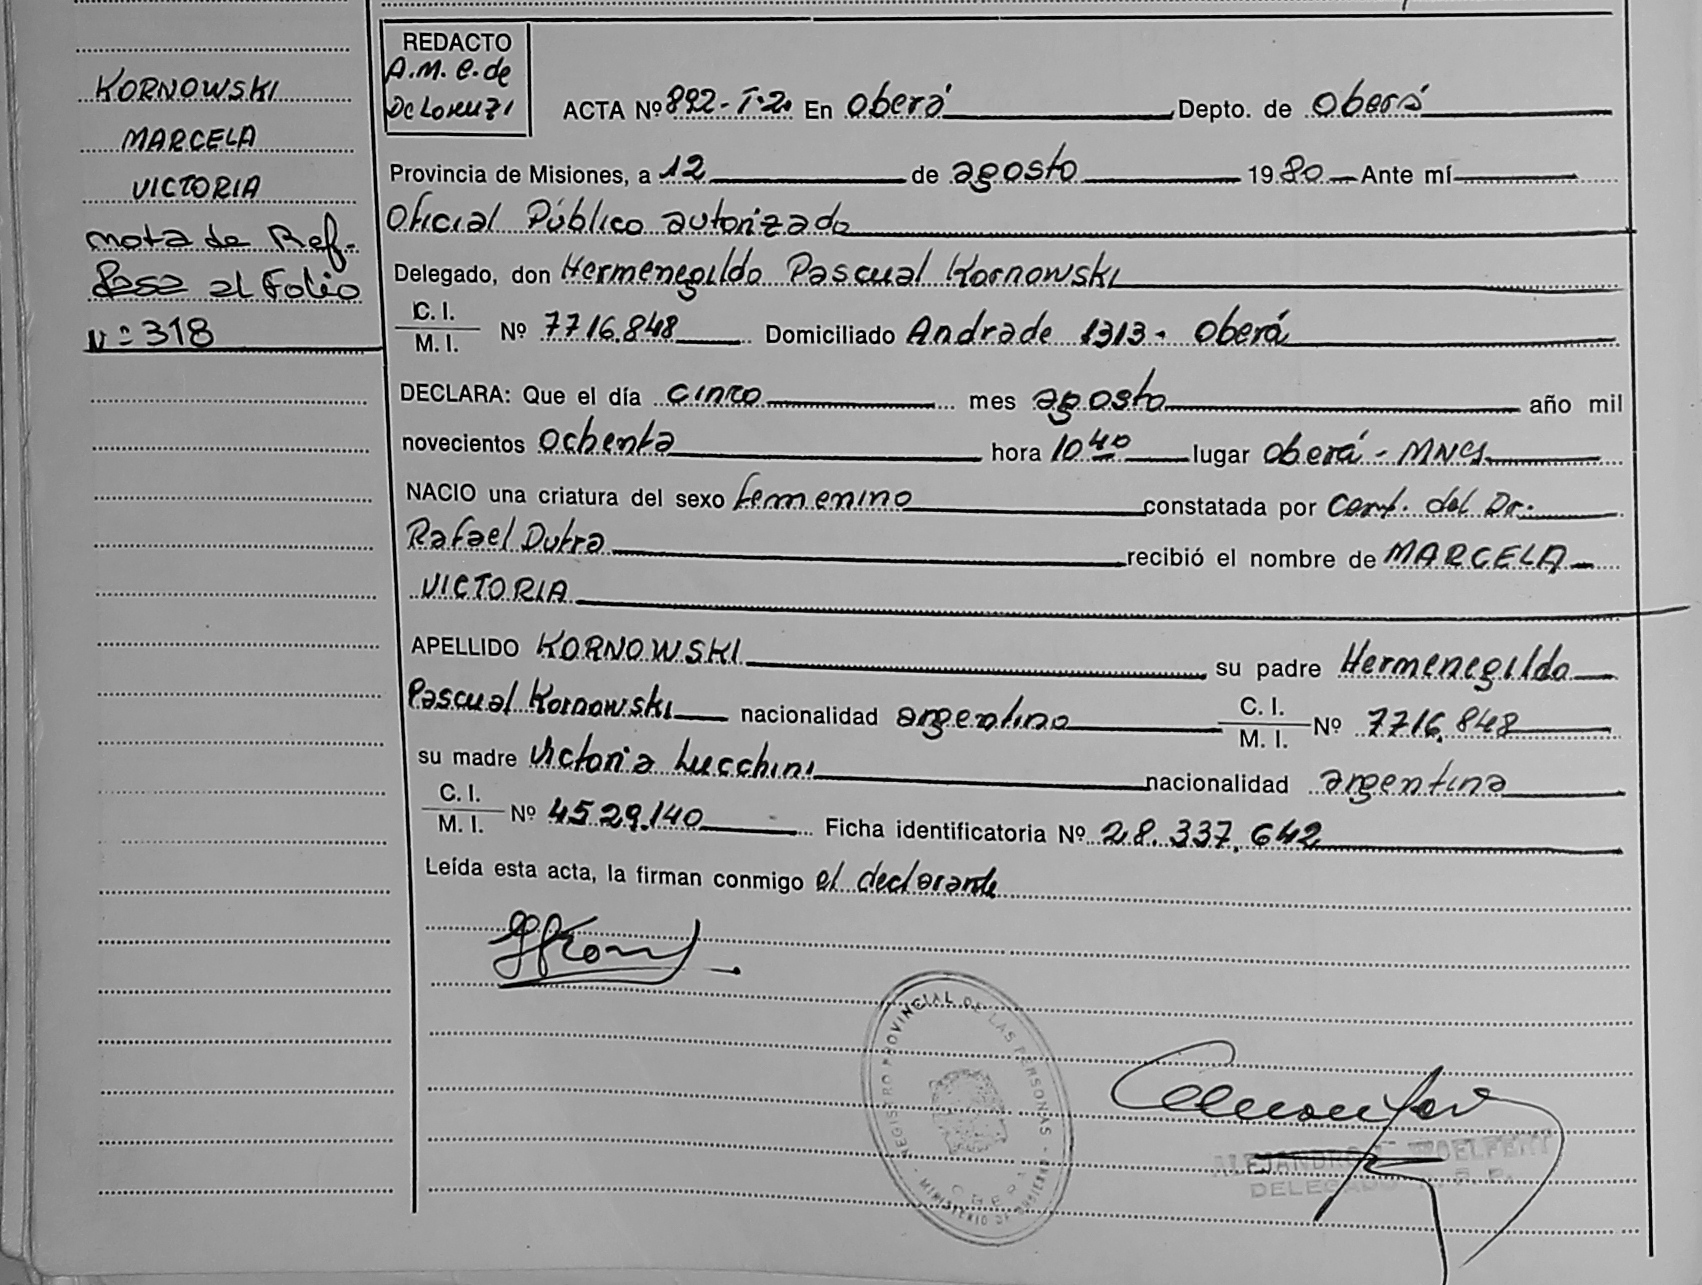 KORNOWSKI
MARCELA
VICTORIA
nota de Ref.
Pasa al Folio
Nº 318
REDACTO
A.M. C. de
De Lorenzi
ACTA Nº 892-T.2. En Oberá Depto. de Oberá
Provincia de Misiones, a 12 de agosto 1980 Ante mí
Oficial Público autorizado
Delegado, don Hermenegildo Pascual Kornowski
C. I.
M. I. Nº 7716.848 Domiciliado Andrade 1313 - Oberá
DECLARA: Que el día cinco mes agosto año mil
novecientos ochenta hora 10 40 lugar Oberá - MNES
NACIO una criatura del sexo femenino constatada por Cert. del Dr.
Rafael Dutra recibió el nombre de MARCELA
VICTORIA
APELLIDO KORNOWSKI su padre Hermenegildo
Pascual Kornowski nacionalidad argentino C. I.
M. I. Nº 7716.848
su madre Victoria Lucchini nacionalidad argentina
C. I.
M. I. Nº 4529.140 Ficha identificatoria Nº 28.337.642
Leída esta acta, la firman conmigo el declarante
REGISTRO PROVINCIAL DE LAS PERSONAS
MINISTERIO DE GOBIERNO
ALEJANDRO WOELFERT
DELEGADO R. P.